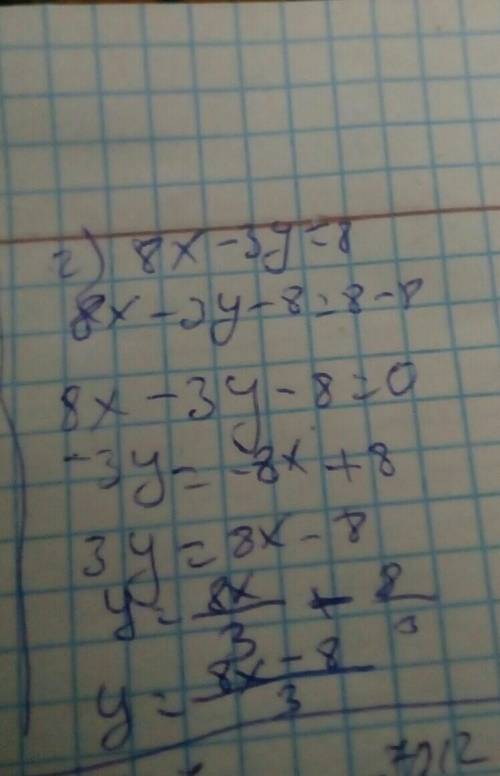 г) 8x - 3y = 8
8x - 3y - 8 = 8 - 8
8x - 3y - 8 = 0
-3y = -8x + 8
3y = 8x - 8
y = 8x/3 - 8/3
y = (8x - 8)/3